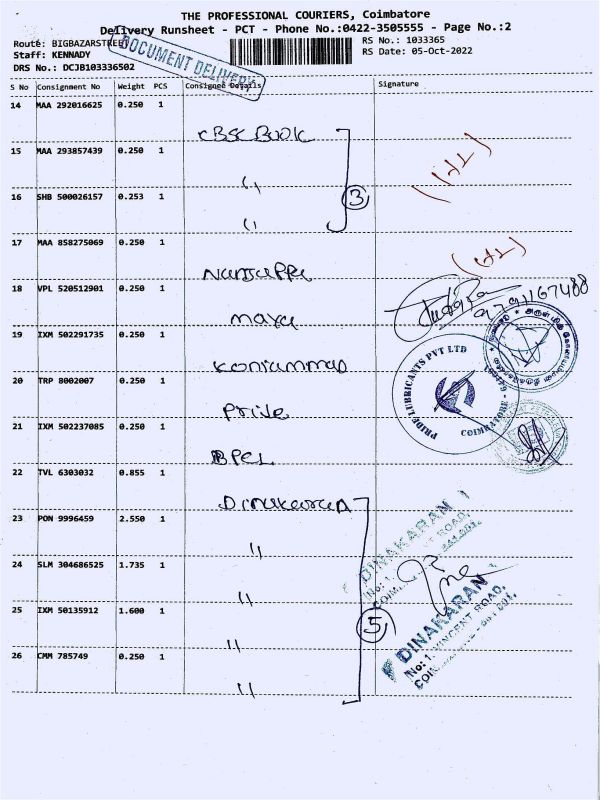 THE PROFESSIONAL COURIERS, Coimbatore
Delivery Runsheet - PCT - Phone No.:0422-3505555 - Page No.:2
Route: BIGBAZARSTREET
Staff: KENNADY
DRS No.: DCJB103336502
DOCUMENT DELIVERY
RS No.: 1033365
RS Date: 05-Oct-2022
S No Consignment No Weight PCS Consignee Details Signature
14 MAA 292016625 0.250 1 CBSC BOOK
15 MAA 293857439 0.250 1 "
16 SHB 500026157 0.253 1 "
3
17 MAA 858275069 0.250 1 Nanjappa
18 VPL 520512901 0.250 1 maya
19 IXM 502291735 0.250 1 Koniammao
20 TRP 8002007 0.250 1 Pride
PRIDE LUBRICANTS PVT LTD
COIMBATORE
21 IXM 502237085 0.250 1 BPCL
22 TVL 6303032 0.855 1 Dinakaran
23 PON 9996459 2.550 1 "
24 SLM 304686525 1.735 1 "
25 IXM 50135912 1.600 1 "
26 CMM 785749 0.250 1 "
5
DINAKARAN
DINAKARAN
No: 1, VINCENT ROAD,